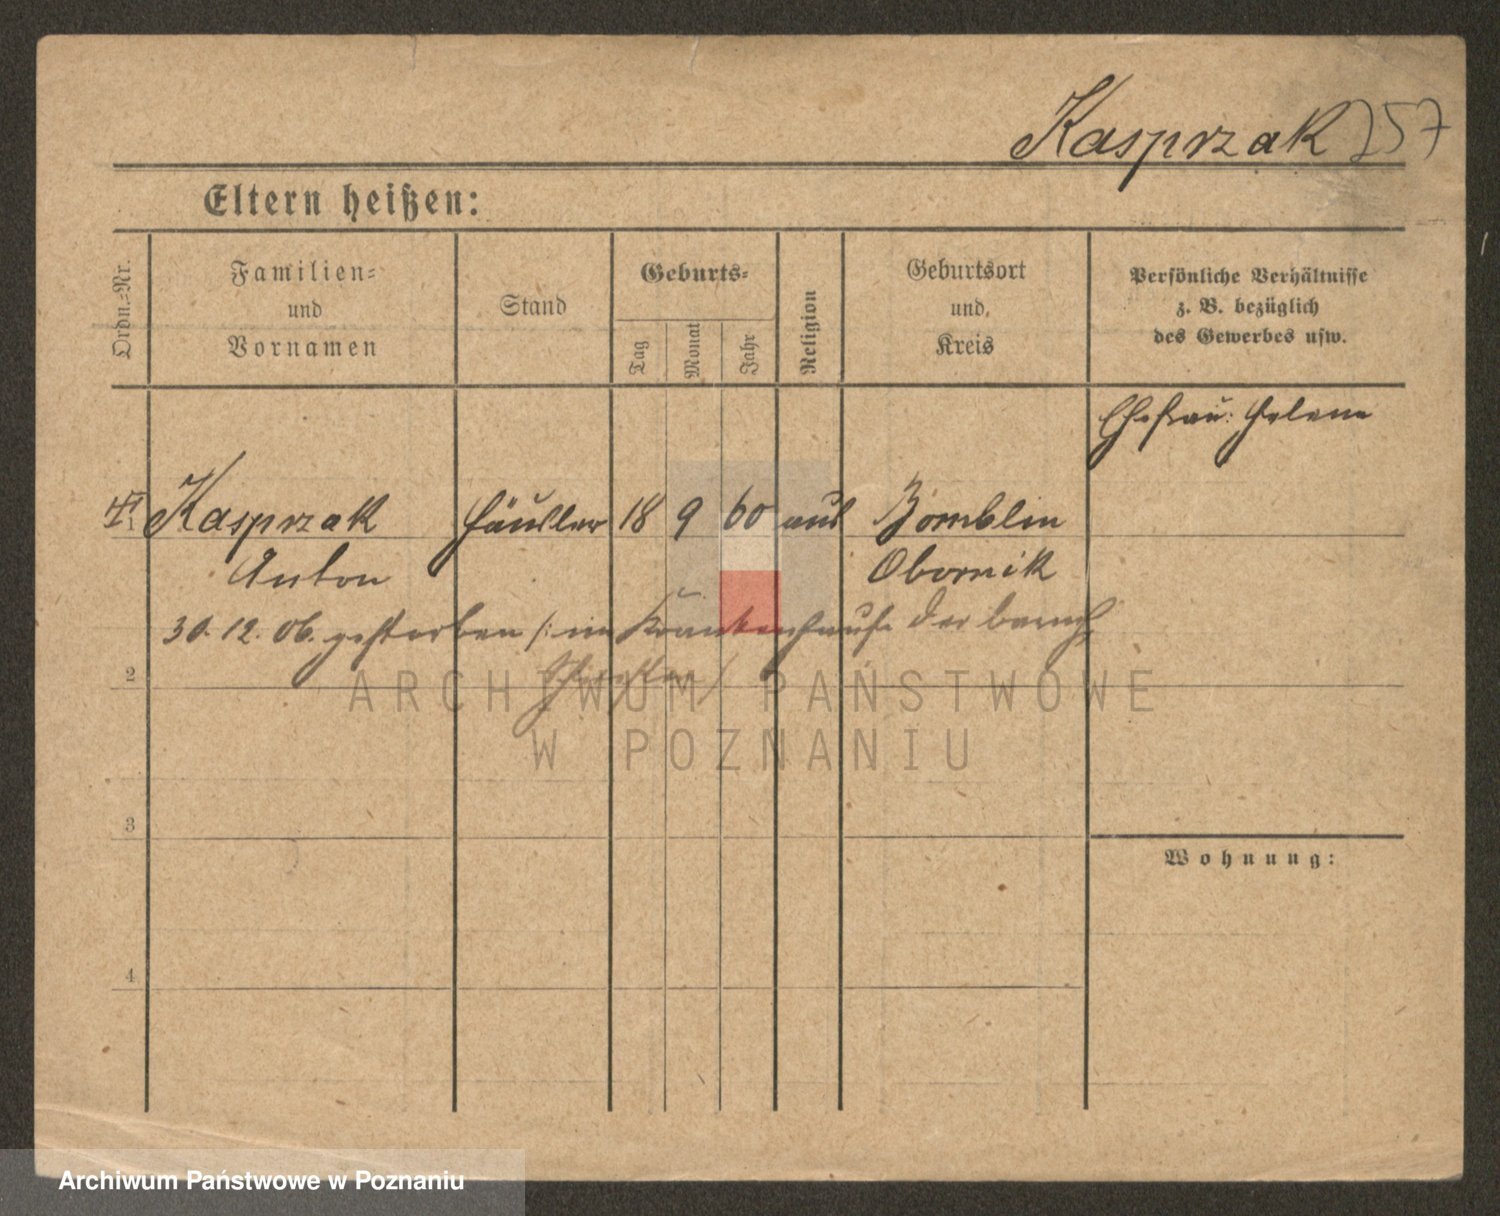 Kasprzak 257
Eltern heißen:
Ordn.-Nr.
Familien-
und
Vornamen
Stand
Geburts-
Tag
Monat
Jahr
Religion
Geburtsort
und
Kreis
Persönliche Verhältnisse
z. B. bezüglich
des Gewerbes usw.
Ehefrau: Helene
1 Kasprzak Häusler 18 9 60 Bomblin
Anton Obornik
30. 12. 06. gestorben /: im Krankenhause der barmh.
2 Schwestern /
ARCHIWUM PAŃSTWOWE
W POZNANIU
3
Wohnung:
4
Archiwum Państwowe w Poznaniu